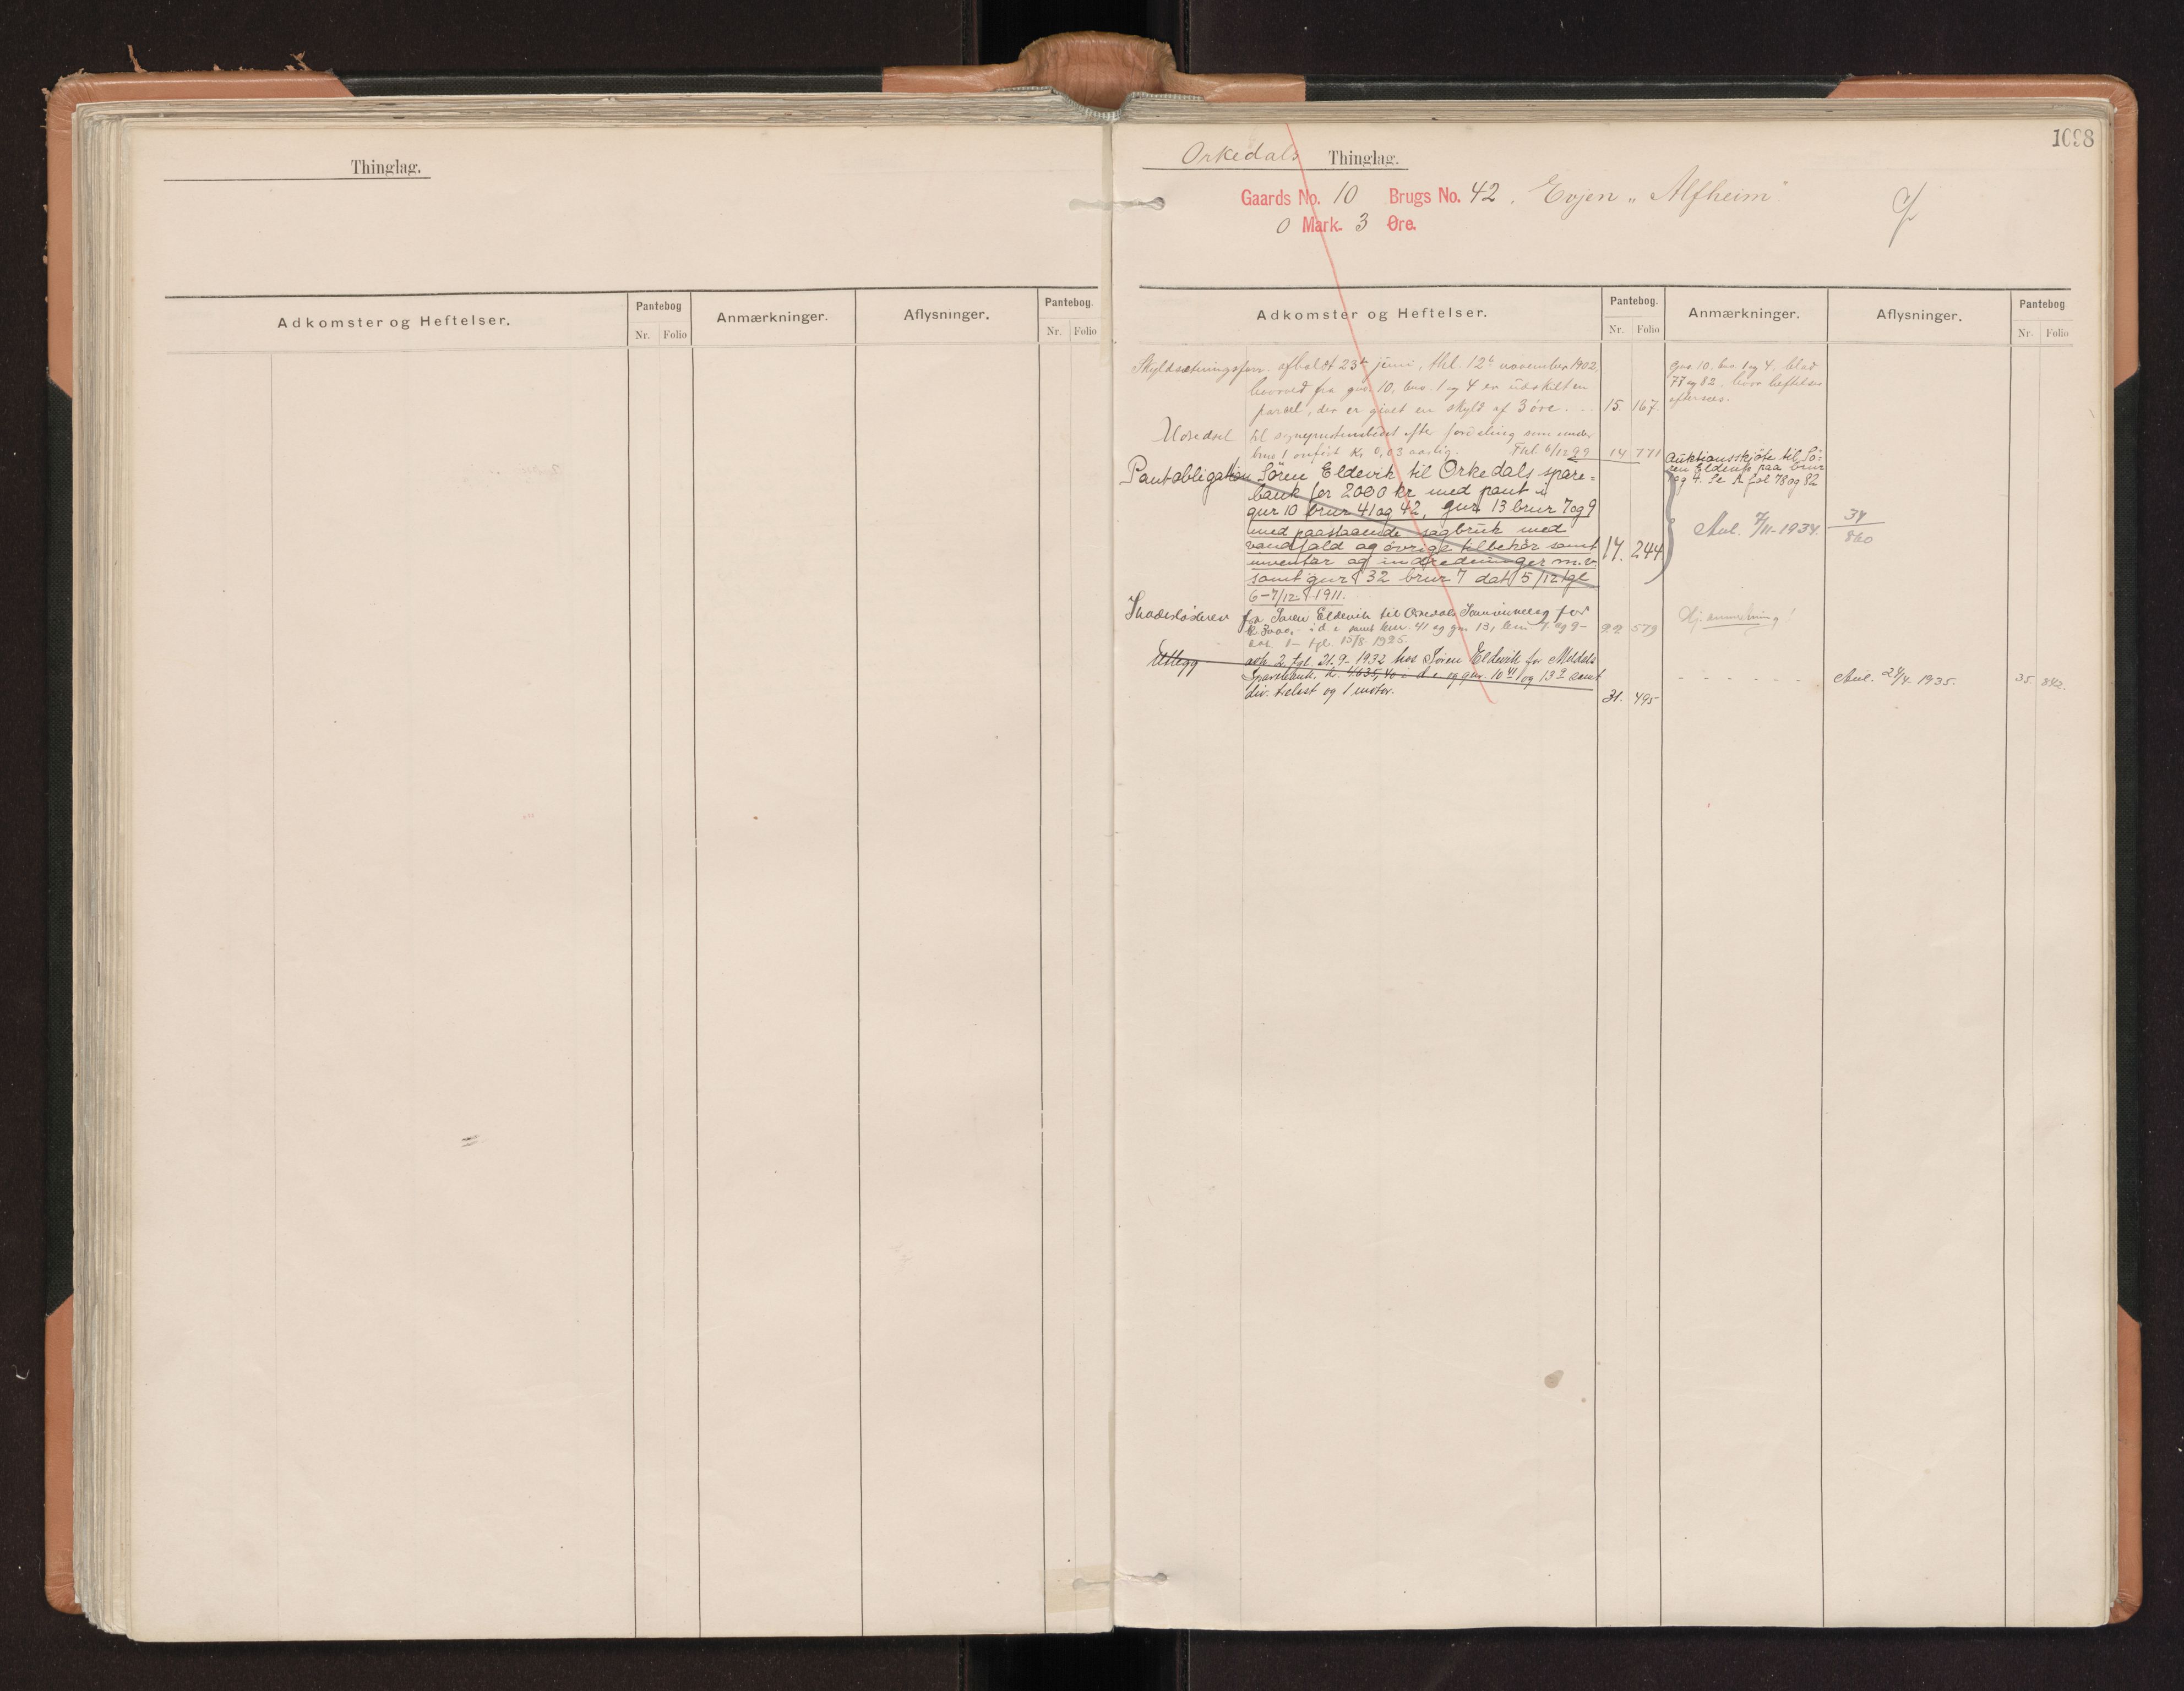 Thinglag.
Adkomster og Heftelser.
Pantebog
Nr. Folio
Anmærkninger.
Aflysninger.
Pantebog.
Nr. Folio
1098
Orkedals Thinglag.
Gaards No. 10 Brugs No. 42. Evjen „Alfheim"
0 Mark. 3 Øre.
Adkomster og Heftelser.
Pantebog.
Nr. Folio
Anmærkninger.
Aflysninger.
Pantebog
Nr. Folio
Skyldsætningsforr. afholdt 23de juni, thl. 12te november 1902,
hvorved fra gno. 10, bno. 1 og 4 er udskilt en
parcel, der er givet en skyld af 3 øre. 15. 167.
gno. 10, bno. 1 og 4, blad
77 og 82, hvor heftelser
eftersees.
til sogneprestembedet efter fordeling som under
bno 1 anført Kr 0,03 aarlig. Thl. 6/12 99 14 771
Auktionsskjøte til Sö-
ren Eldevik paa brnr
1 og 4. Se A fol 78 og 82
Pantobligation Søren Eldevik til Orkedals spare-
bank for 2000 kr med pant i
gnr 10 brnr 41 og 42, gnr 13 brnr 7 og 9
med paastaaende sagbruk med
vandfald og øvrige tilbehör samt
inventar og indredninger m.v.
samt gnr 32 brnr 7 dat 5/12 tgl
6-7/12 1911.
17. 244
Avl. 7/11-1934.
34
860
Skadesløsbrev fra Søren Eldevik til Orkedals Samvirkelag for
kr. 3000,- i d.e samt bnr. 41 og gnr 13, bnr 7 og 9-
tgl. 15/8. 1925.
22 579
Utlegg
tgl. 21.9-1932 hos Søren Eldevik for Meldals
Sparebank, kr. 4635,40 i d.e og gnr. 10 41 og 13 9 samt
div. løsøre og 1 motor.
31. 495
- - - - - -
Avl. 24/4. 1935.
35. 842.